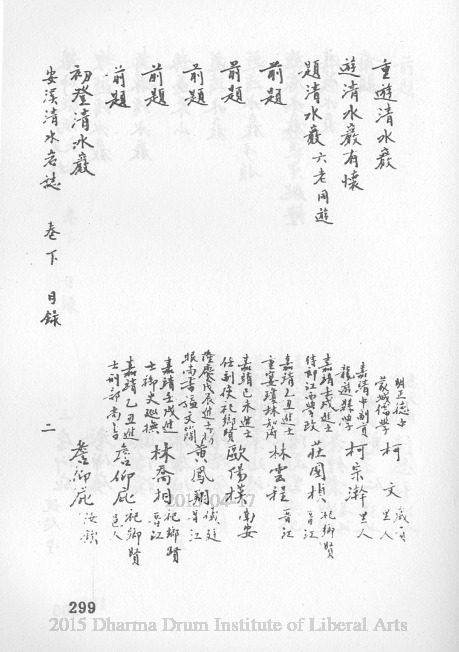 重遊清水巖
遊清水巖有懷
題清水巖 六老同遊
前題
前題
前題
前題
前題
初登清水巖
安溪清水岩誌 卷下 目錄
明正德 柯文 歲貢
蒙城儒學 邑人
嘉靖 副貢 柯宗 邑人
龍遊縣學
嘉靖 進士 莊國楨 祀鄉賢
侍郎 晉江
嘉靖乙丑進士 林雲程 晉江
嘉靖己未進士 歐陽模 南安
祀鄉賢
隆慶戊辰進士 黃鳳翔 儀廷
尚書謚文簡 晉江
嘉靖壬戌進士 林喬相 祀鄉賢
御史巡撫 晉江
嘉靖乙丑進士 詹仰庇 祀鄉賢
刑部 邑人
詹仰庇
二
299
2015-04-17
2015 Dharma Drum Institute of Liberal Arts